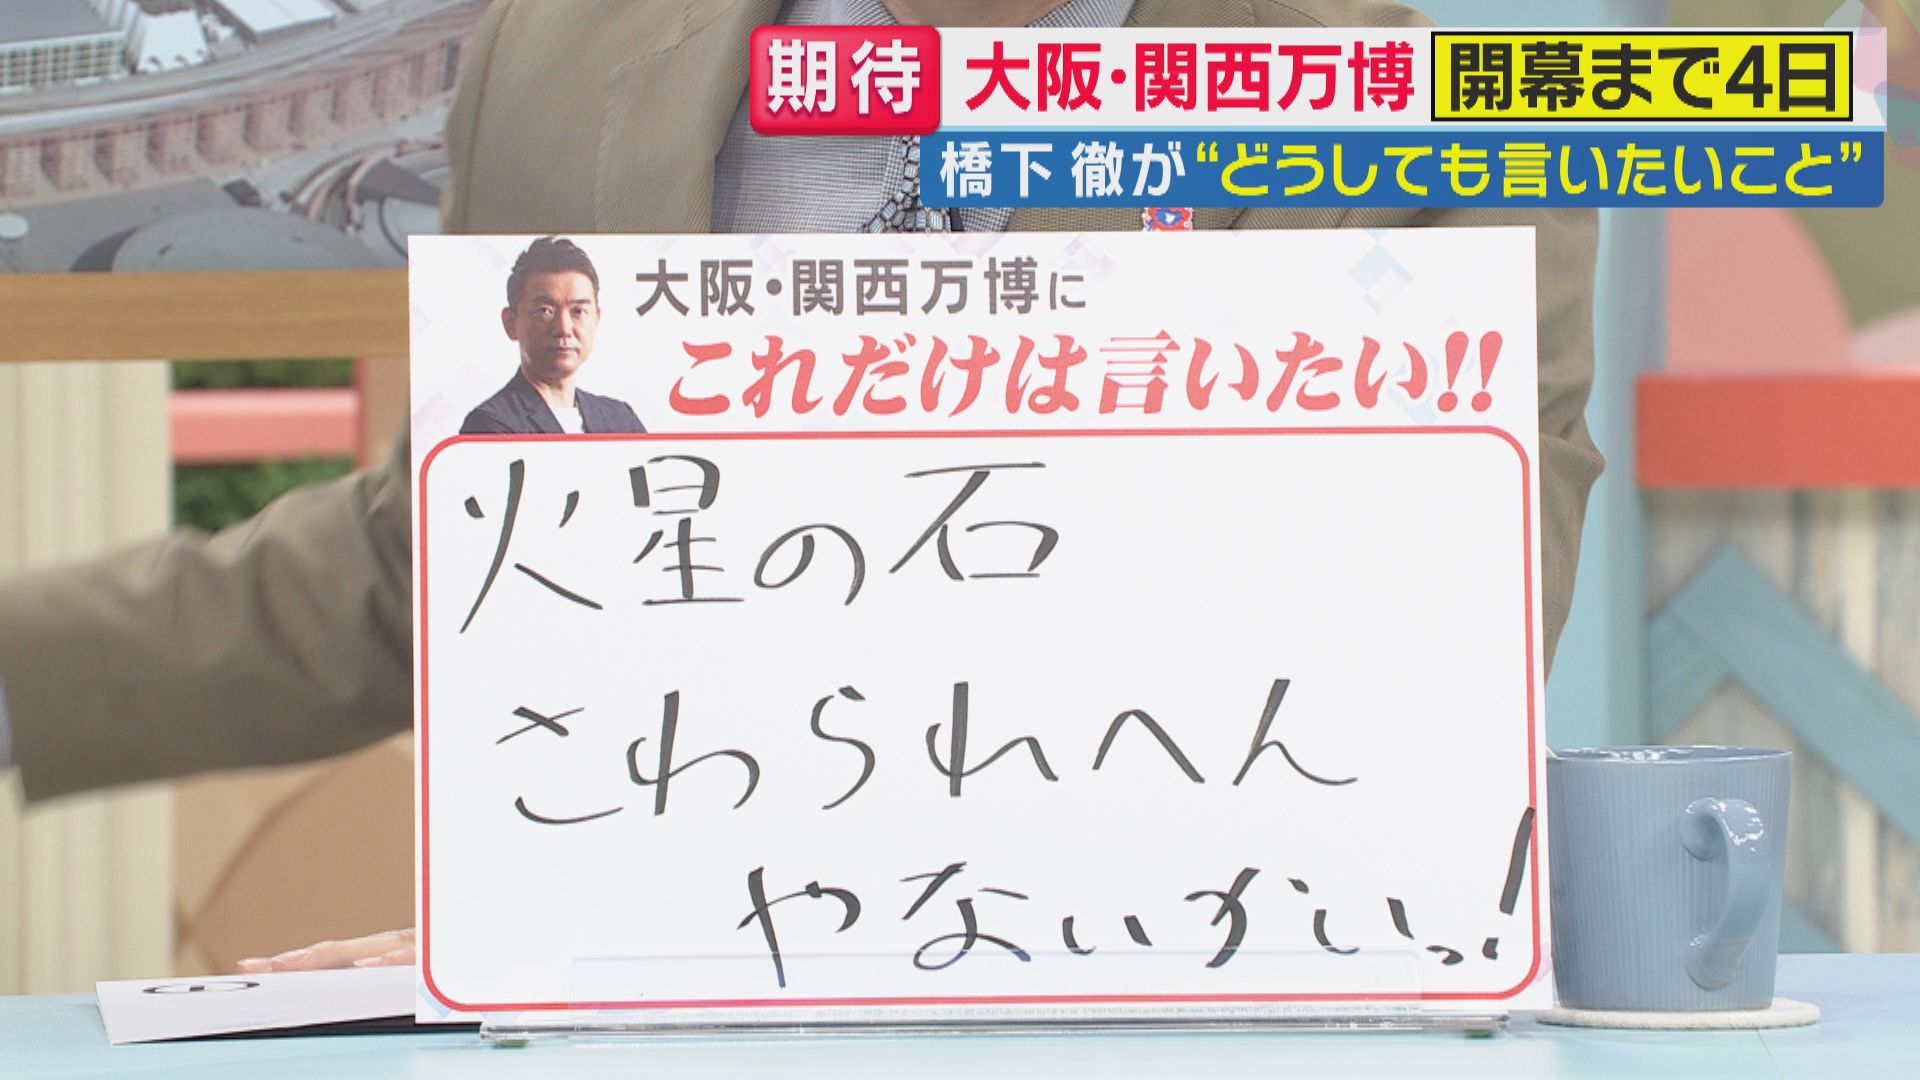 期待 大阪・関西万博 開幕まで4日
橋下 徹が“どうしても言いたいこと”
大阪・関西万博に
これだけは言いたい!!
火星の石
さわられへん
やないかいっ!